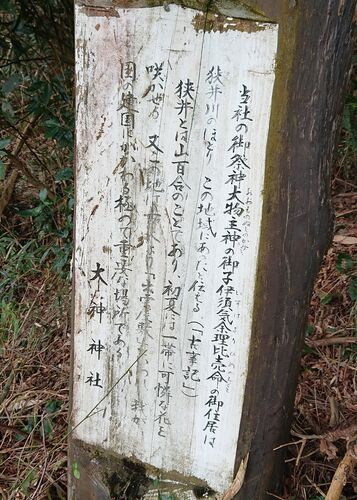 当社の御祭神大物主神の御子伊須気余理比売命の御住居は
狭井川のほとり この地域にあったと伝える（「古事記」）
狭井とは山百合のことであり 初夏は一帯に可憐な花を
咲かせる 又この地は
国の建国にかかわる極めて重要な場所である
大神神社